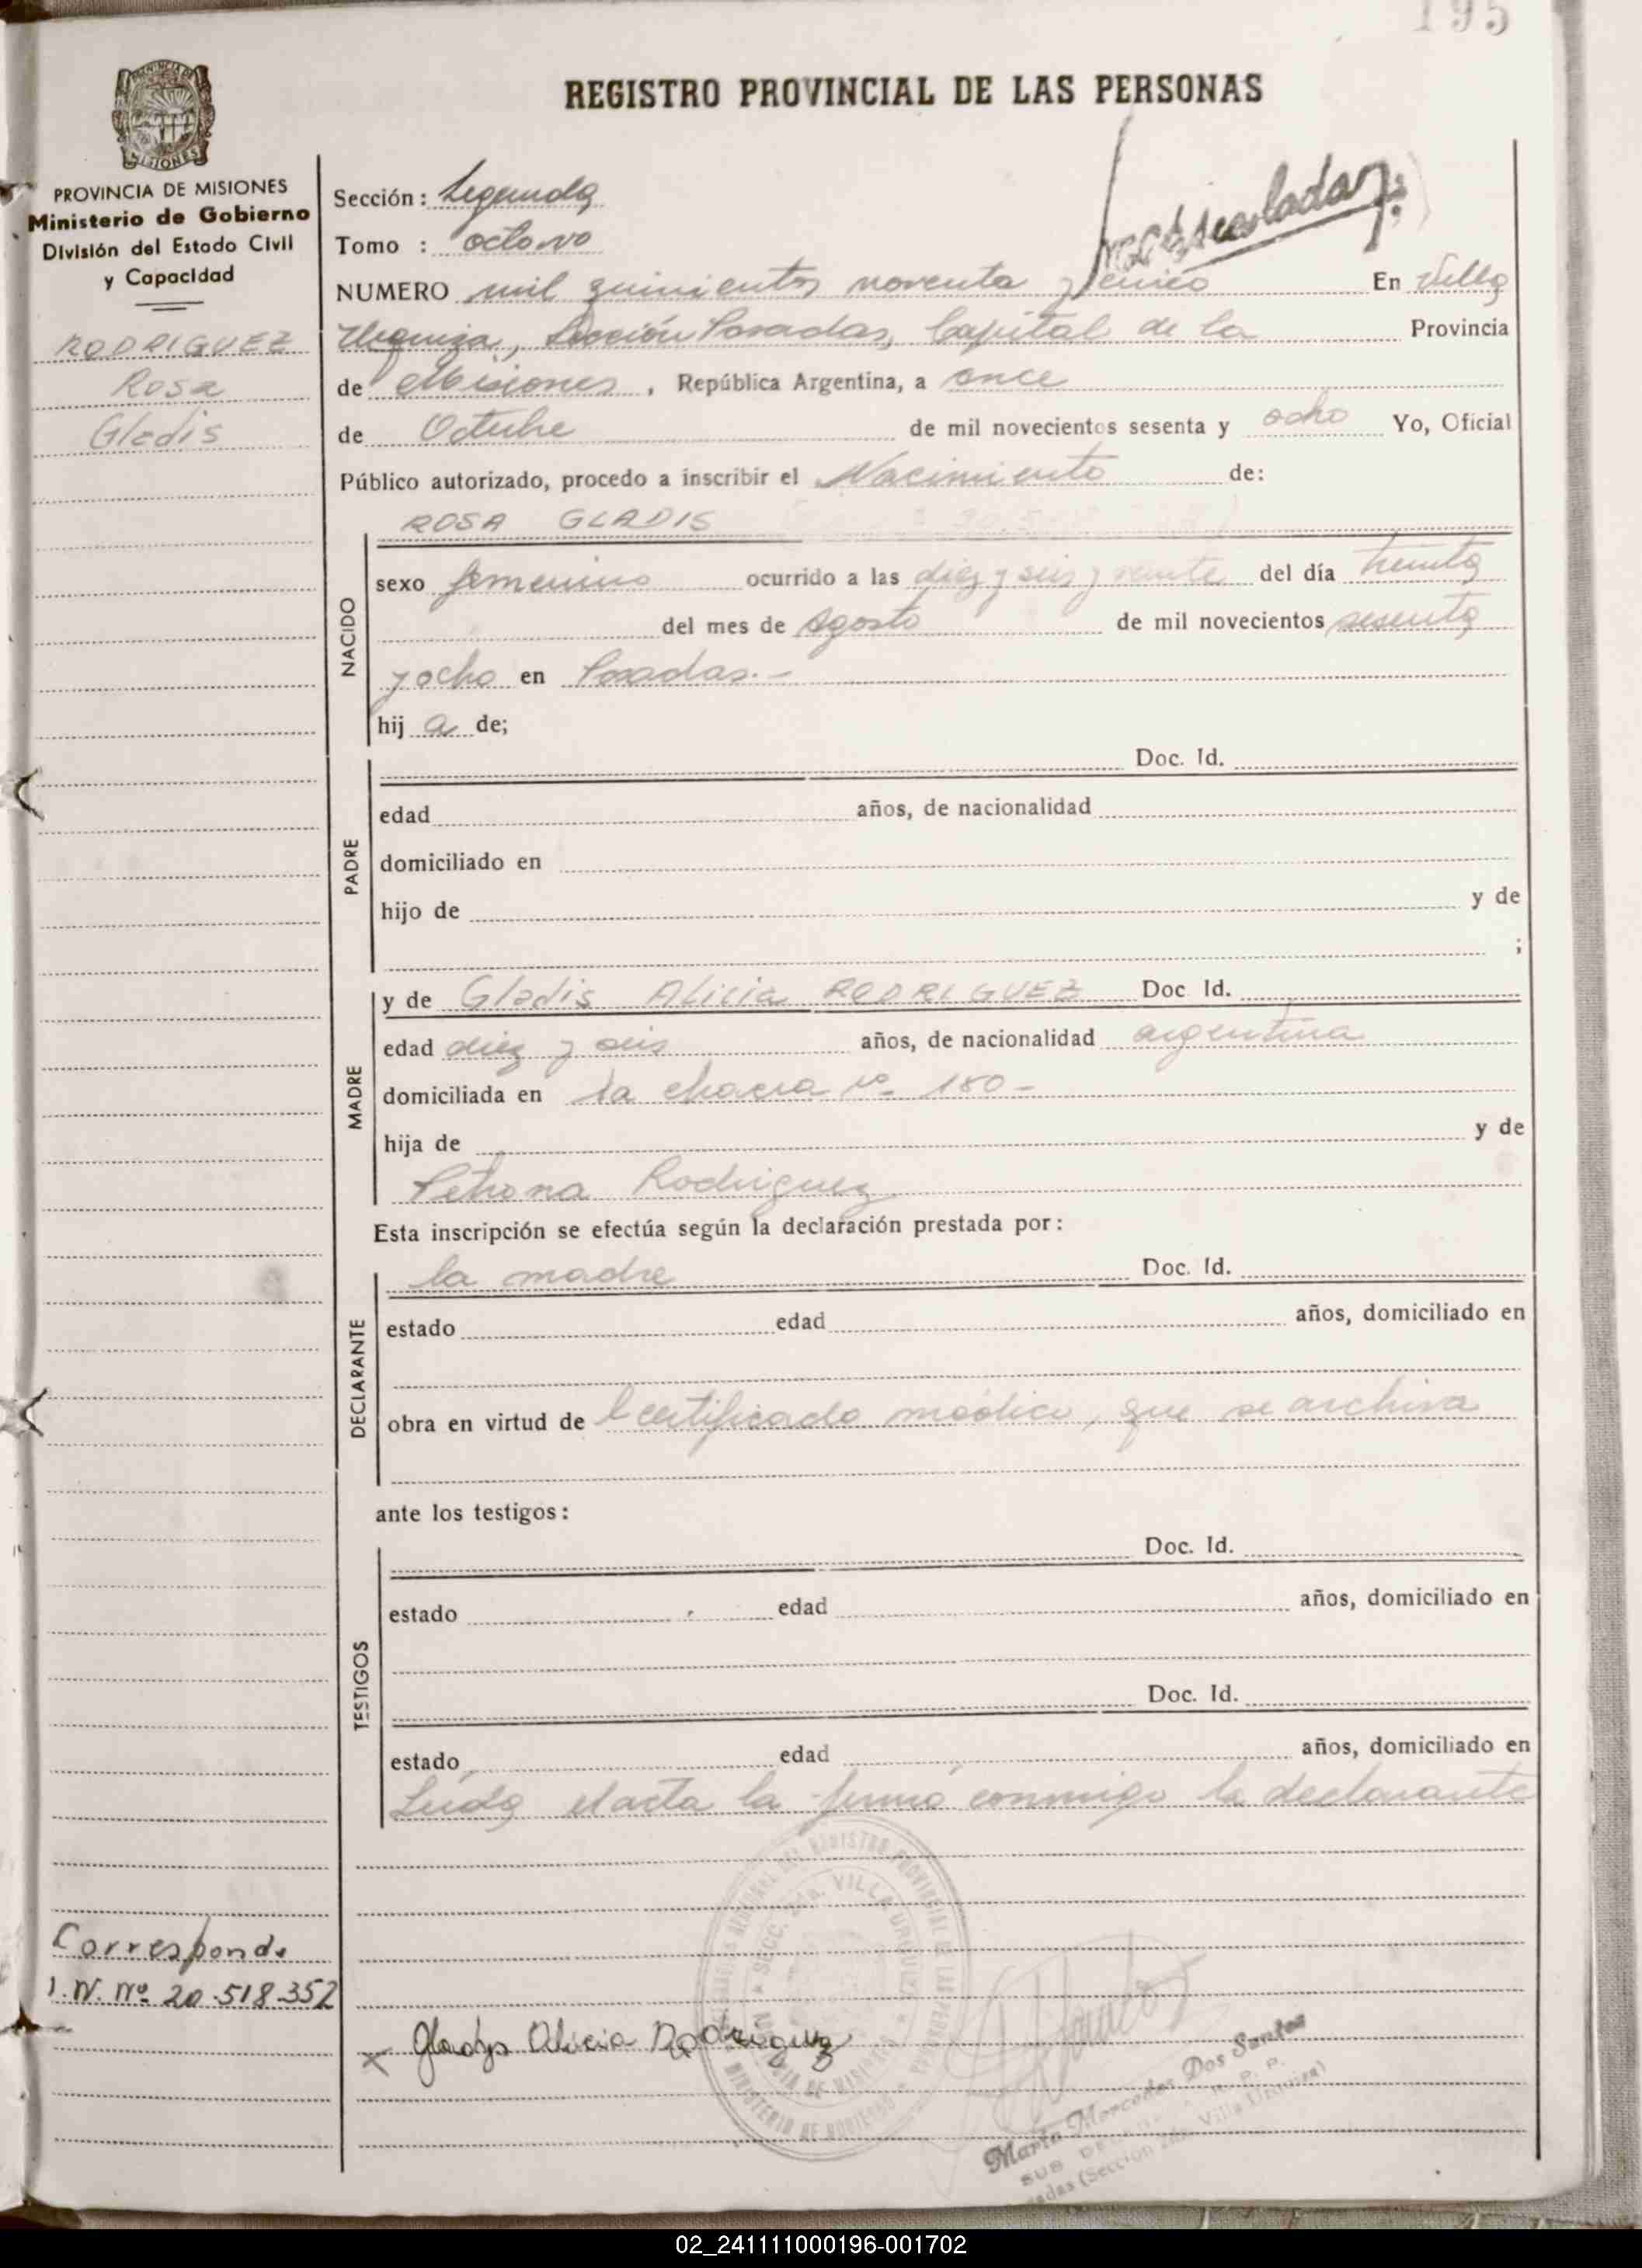 195
REGISTRO PROVINCIAL DE LAS PERSONAS
MISIONES
PROVINCIA DE MISIONES
Ministerio de Gobierno
División del Estado Civil
y Capacidad
RODRIGUEZ
Rosa
Gladis
Sección: Segunda
Tomo : octavo
NUMERO mil quinientos noventa y cinco En Villa
Urquiza, Sección Posadas, Capital de la Provincia
de Misiones, República Argentina, a once
de Octubre de mil novecientos sesenta y ocho Yo, Oficial
Público autorizado, procedo a inscribir el Nacimiento de:
ROSA GLADIS
NACIDO
sexo femenino ocurrido a las diez y seis y veinte del día treinta
del mes de Agosto de mil novecientos sesenta
y ocho en Posadas.-
hij a de;
PADRE
Doc. Id.
edad años, de nacionalidad
domiciliado en
hijo de y de
;
MADRE
y de Gladis Alicia RODRIGUEZ Doc Id.
edad diez y seis años, de nacionalidad argentina
domiciliada en la chacra nº 180-
hija de y de
Petrona Rodriguez
Esta inscripción se efectúa según la declaración prestada por:
DECLARANTE
la madre Doc. Id.
estado edad años, domiciliado en
obra en virtud de certificado médico, que se archiva
ante los testigos:
TESTIGOS
Doc. Id.
estado edad años, domiciliado en
Doc. Id.
estado edad años, domiciliado en
Leída el acta la firmó conmigo la declarante
Corresponde
I.N. Nº 20.518.352
x Gladys Alicia Rodriguez
SECC. 2da. VILLA URQUIZA
MINISTERIO DE GOBIERNO
Marta Mercedes Dos Santos
02_241111000196-001702